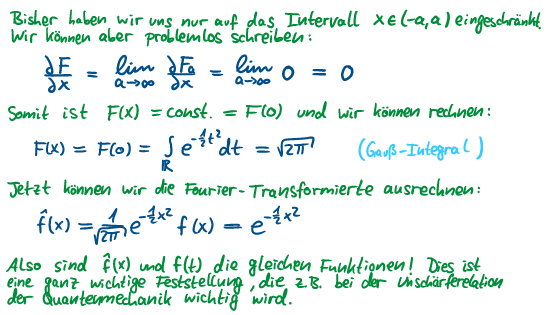 Bisher haben wir uns nur auf das Intervall x∈(-a,a) eingeschränkt
Wir können aber problemlos schreiben:
∂F/∂x = lim_{a→∞} ∂F_a/∂x = lim_{a→∞} 0 = 0
Somit ist F(x) = const. = F(0) und wir können rechnen:
F(x) = F(0) = ∫_ℝ e^{-1/2 t²} dt = √2π (Gauß-Integral)
Jetzt können wir die Fourier-Transformierte ausrechnen:
f̂(x) = 1/√2π e^{-1/2 x²} f(x) = e^{-1/2 x²}
Also sind f̂(x) und f(t) die gleichen Funktionen! Dies ist
eine ganz wichtige Feststellung, die z.B. bei der Unschärferelation
der Quantenmechanik wichtig wird.